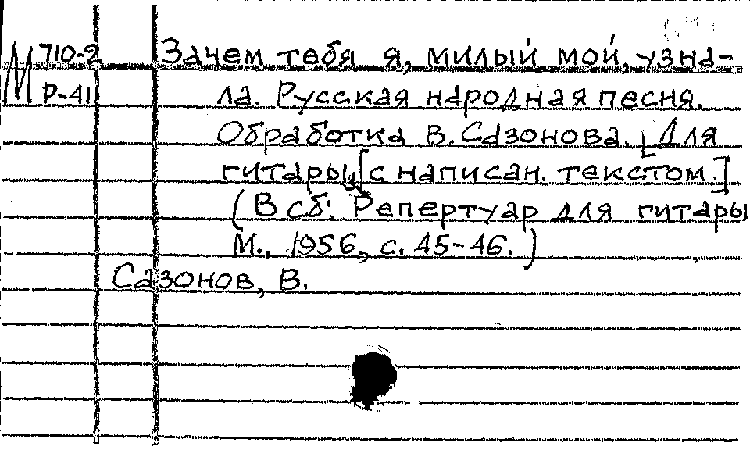 М 710-2 Зачем тебя я, милый мой, узна-
Р-41 ла. Русская народная песня.
Обработка В. Сазонова. [Для
гитары, [с написан. текстом.]
(В сб: Репертуар для гитары
М., 1956, с. 45-46.)
Сазонов, В.